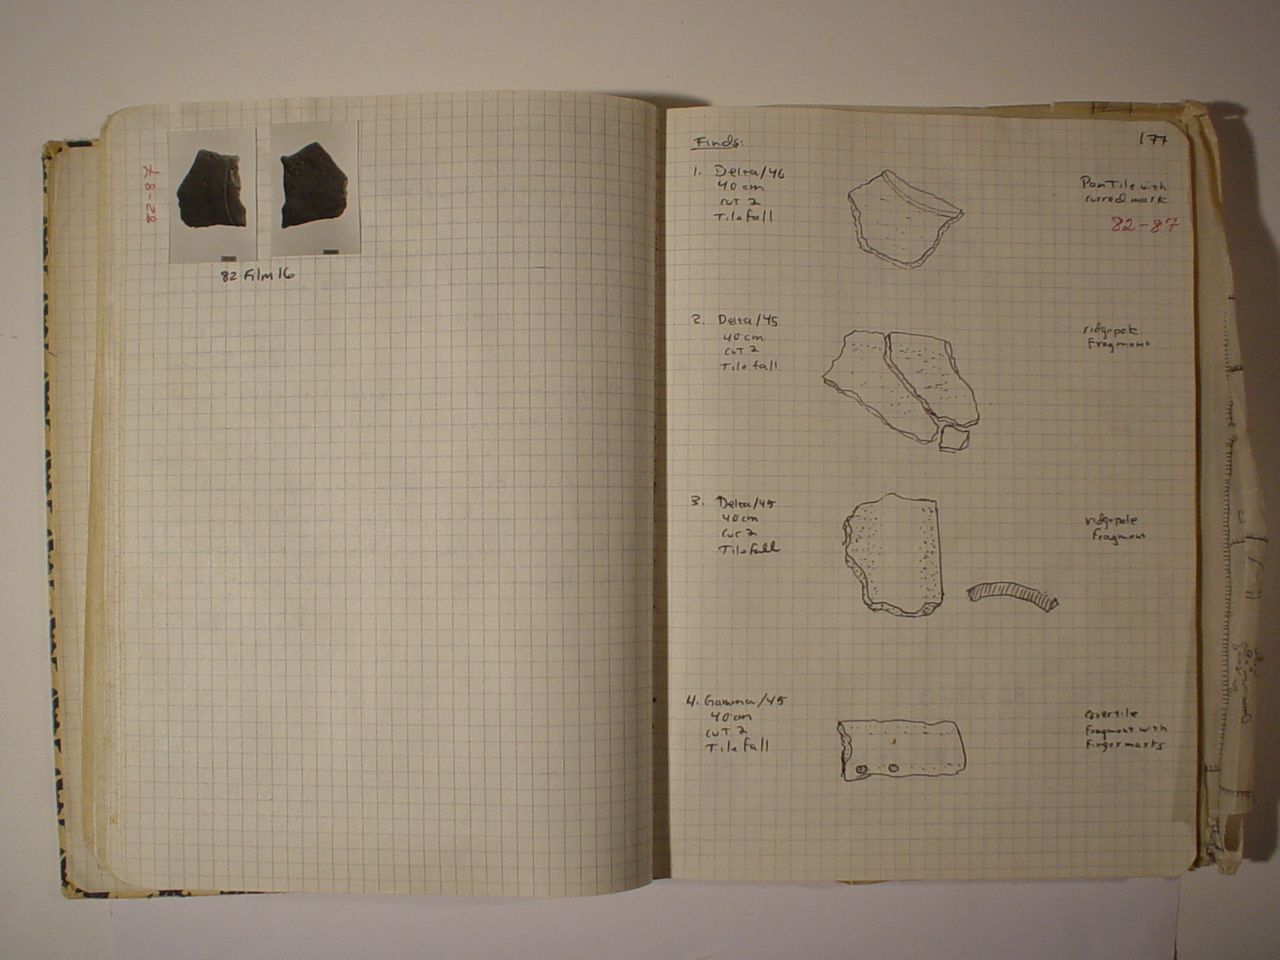 82-87
82 Film 16
177
Finds:
1. Delta/46
40 cm
cut 2
Tile fall
Pan Tile with
curved mark
82-87
2. Delta/45
40 cm
cut 2
Tile fall
ridgepole
Fragment
3. Delta/45
40 cm
cut 2
Tile fall
ridgepole
fragment
4. Gamma/45
40 cm
cut 2
Tile fall
covertile
fragment with
fingermarks